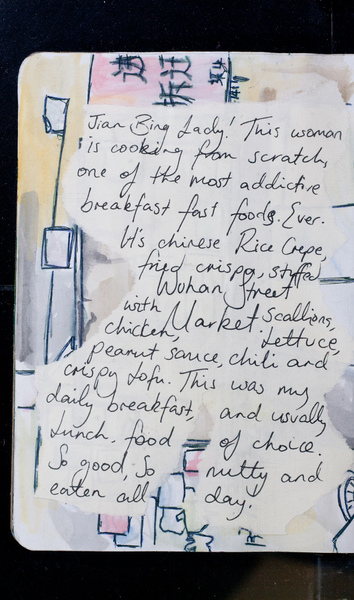 进 拆迁
Jian Bing Lady! This woman
is cooking from scratch,
one of the most addictive
breakfast fast foods. Ever.
It's chinese Rice Crepe,
fried crispy, stuffed
Wuhan Street
with Market. Scallions,
chicken, Lettuce,
peanut sauce, chili and
crispy tofu. This was my
daily breakfast, and usually
Lunch. food of choice.
So good, So nutty and
eaten all day.